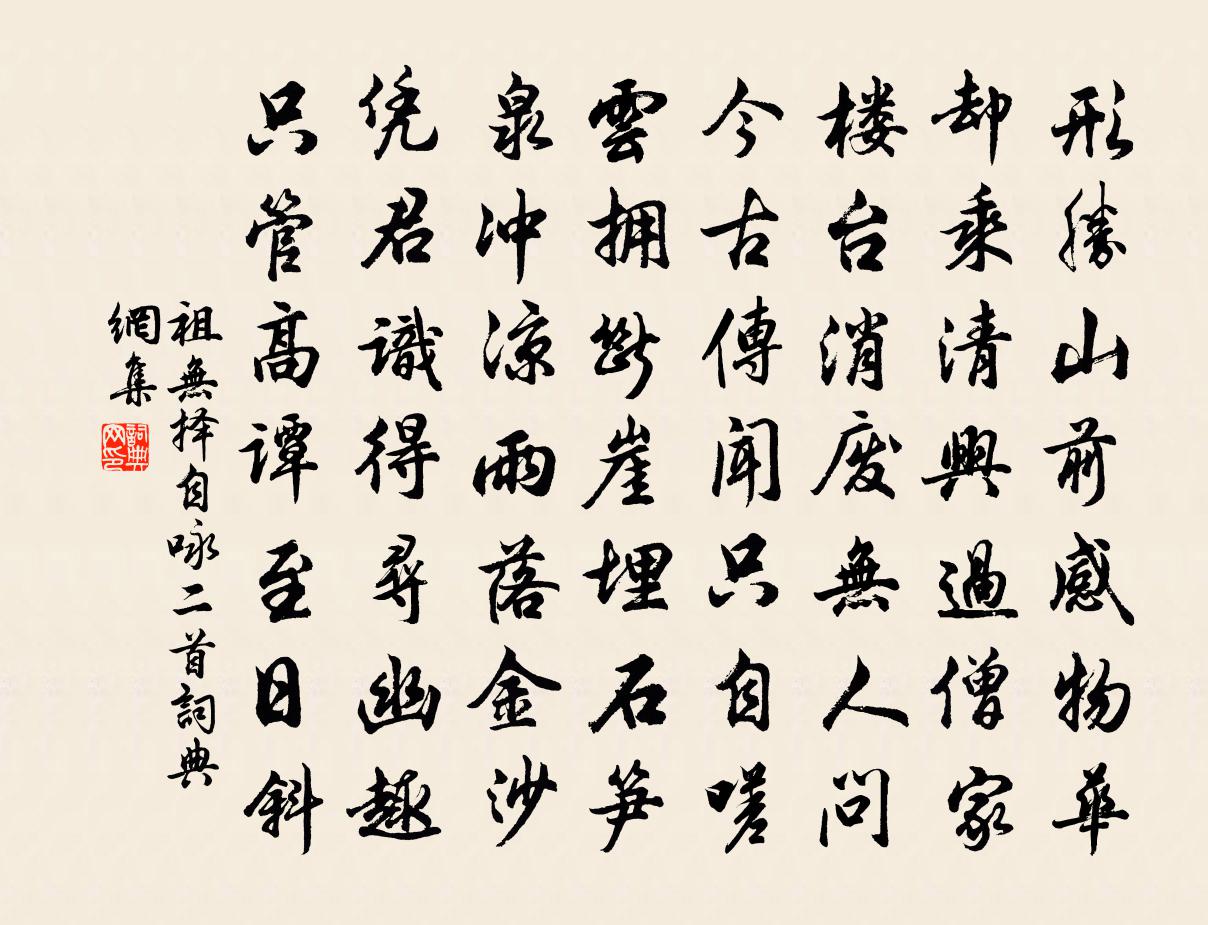 形勝山前感物華
却乘清興過僧家
楼台消废無人問
今古傳聞只自嗟
雲拥断崖埋石笋
泉冲凉雨落金沙
凭君識得尋幽趣
只管高谭至日斜
祖無择自咏二首詞典
網集
詞典网印